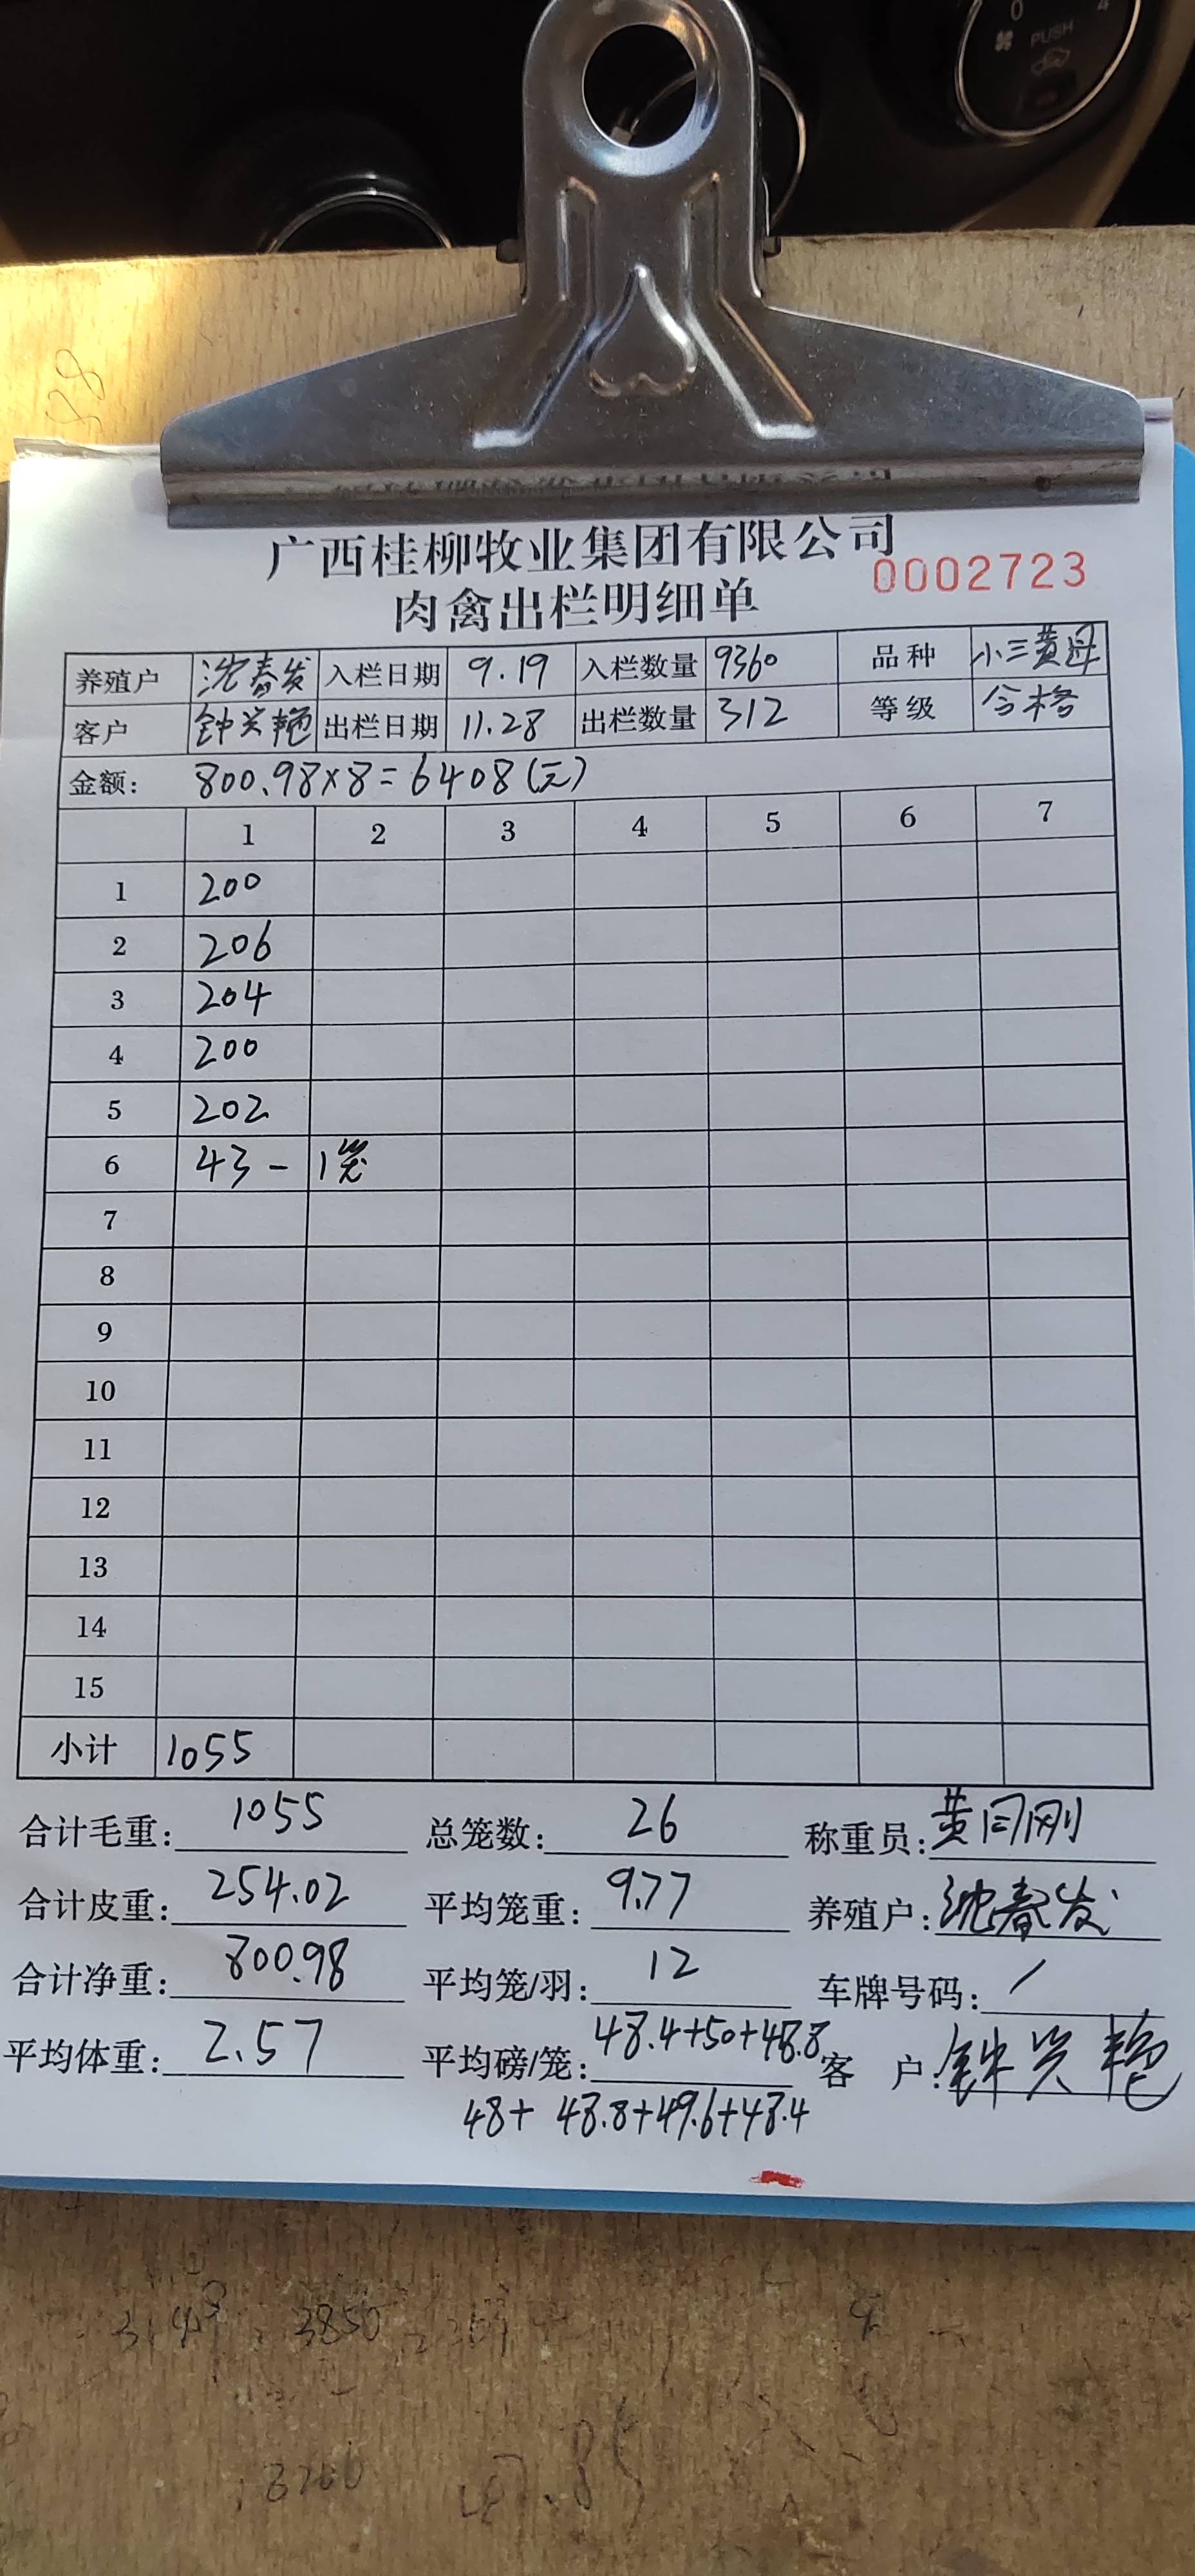 广西桂柳牧业集团有限公司
0002723
肉禽出栏明细单
养殖户 沈春发 入栏日期 9.19 入栏数量 9360 品种 小三黄母
客户 钟兴艳 出栏日期 11.28 出栏数量 312 等级 合格
金额: 800.98×8=6408(元)
1 2 3 4 5 6 7
1 200
2 206
3 204
4 200
5 202
6 43 - 1笼
7
8
9
10
11
12
13
14
15
小计 1055
合计毛重: 1055 总笼数: 26 称重员: 黄刚
合计皮重: 254.02 平均笼重: 9.77 养殖户: 沈春发
合计净重: 800.98 平均笼/羽: 12 车牌号码: /
平均体重: 2.57 平均磅/笼: 48.4+50+48.8 客 户: 钟兴艳
48+ 48.8+49.6+48.4
PUSH
0
4
88
3850